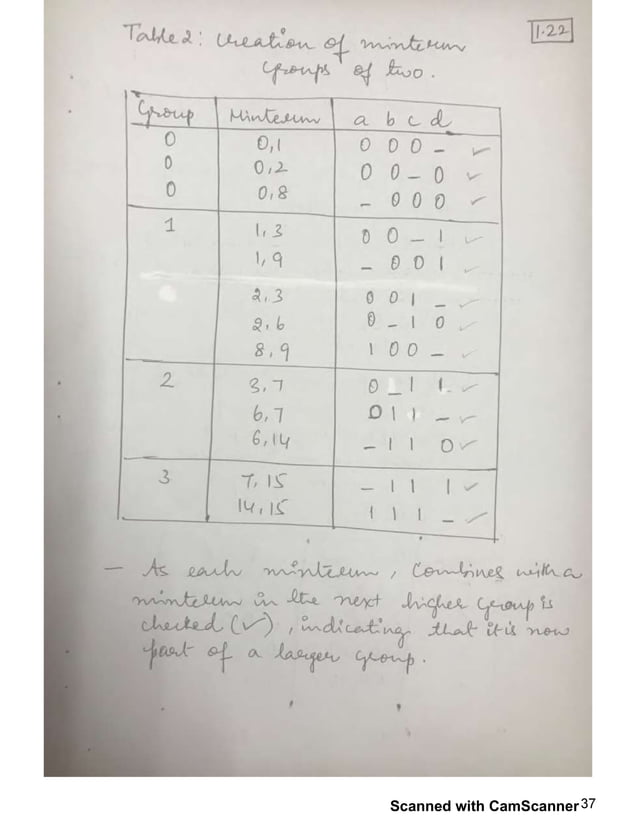 Table 2: Creation of minterm
groups of two.
1.22
Group Minterm a b c d
0 0,1 0 0 0 – ✓
0 0,2 0 0 – 0 ✓
0 0,8 – 0 0 0 ✓
1 1,3 0 0 – 1 ✓
1,9 – 0 0 1 ✓
2,3 0 0 1 – ✓
2,6 0 – 1 0 ✓
8,9 1 0 0 – ✓
2 3,7 0 – 1 1 ✓
6,7 0 1 1 – ✓
6,14 – 1 1 0 ✓
3 7,15 – 1 1 1 ✓
14,15 1 1 1 – ✓
– As each minterm, combines with a
minterm in the next higher group is
checked (✓), indicating that it is now
part of a larger group.
Scanned with CamScanner 37